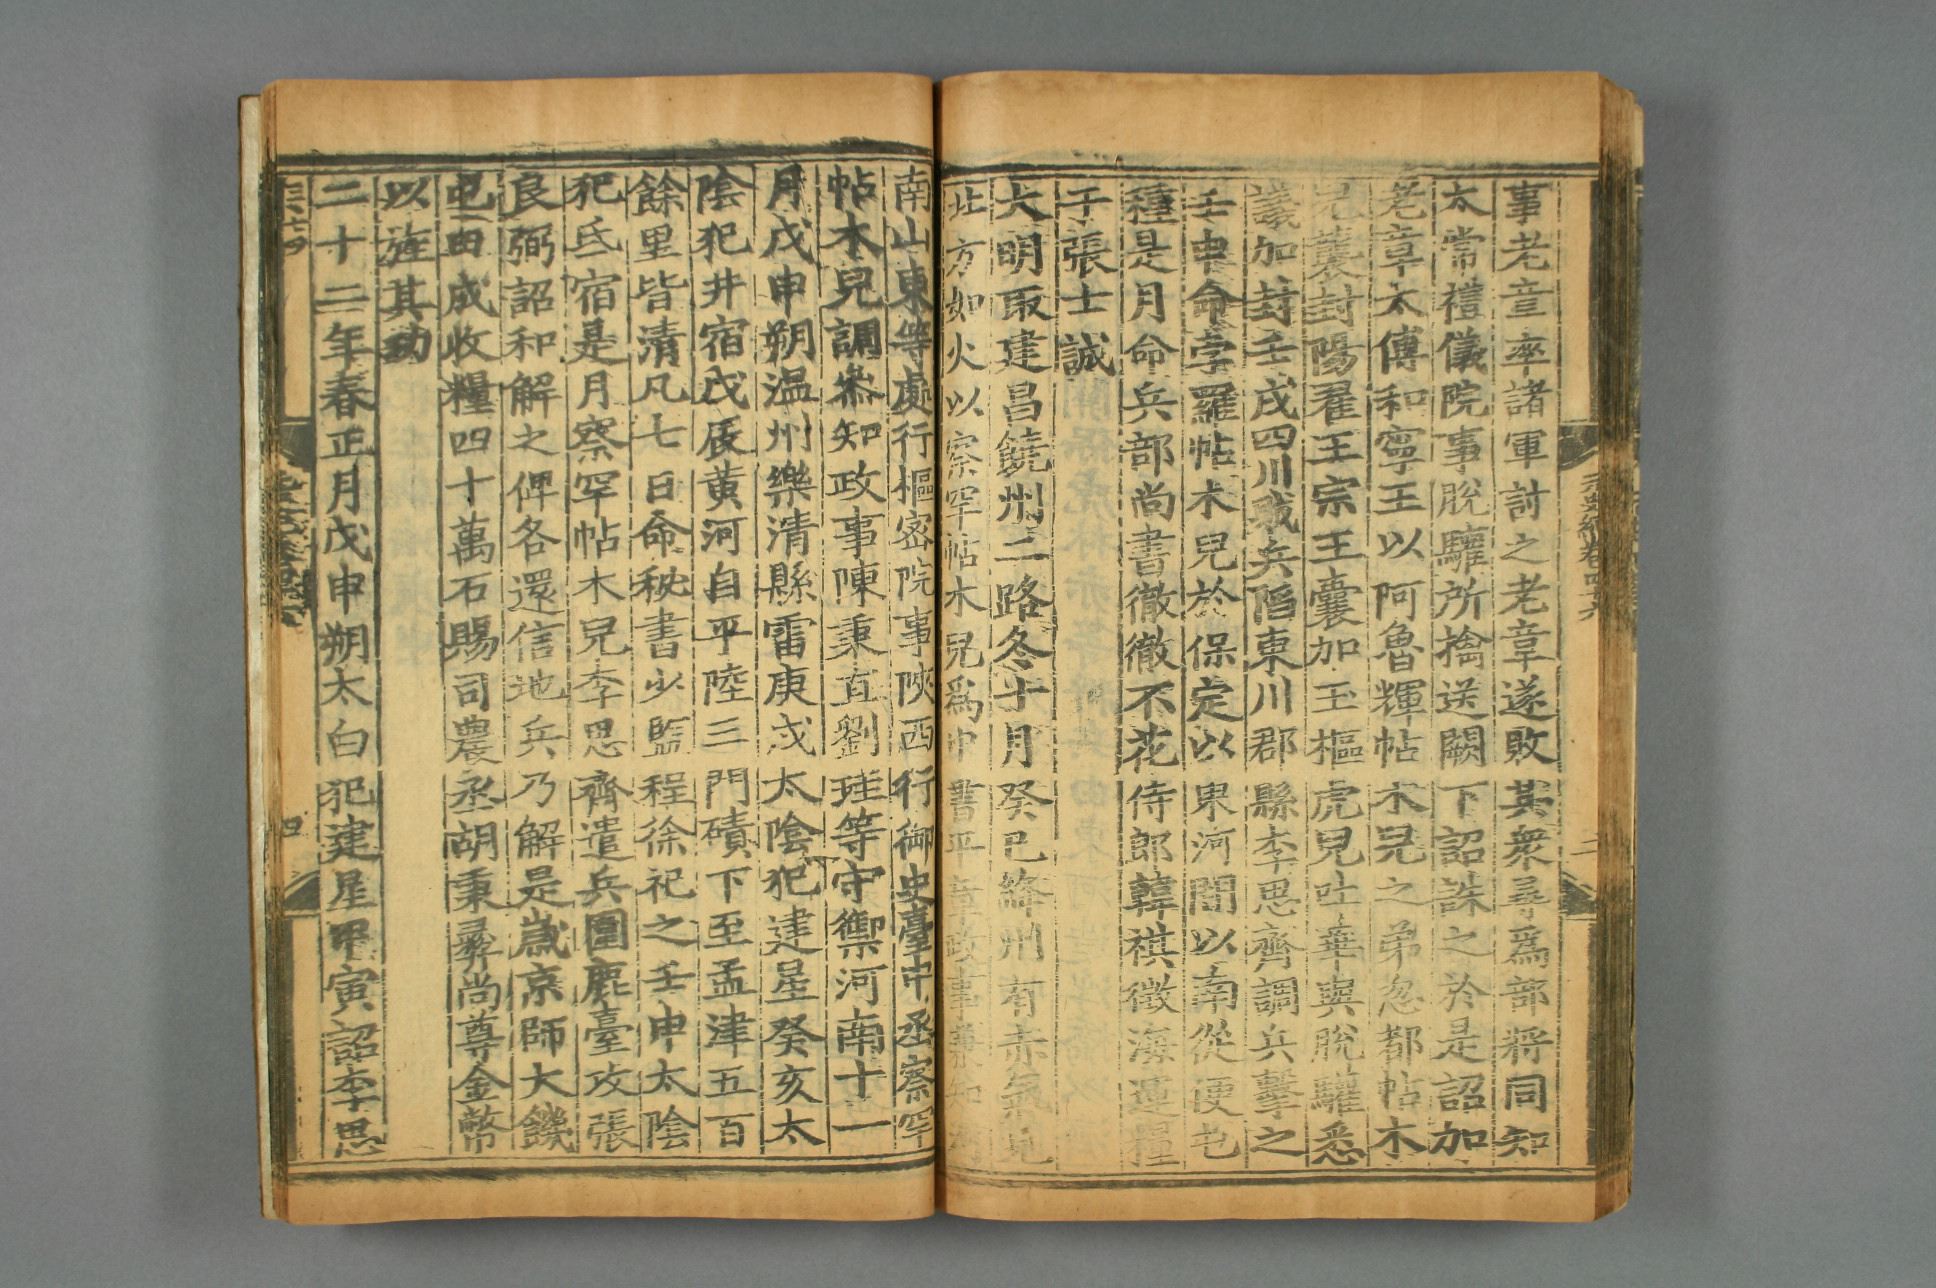 事老章率諸軍討之老章遂敗其衆尋爲部將同知
太常禮儀院事脫驩所擒送闕下詔誅之於是詔加
老章太傅和寧王以阿魯輝帖木兒之弟忽都帖木
兒襲封陽翟王宗王囊加玉樞虎兒吐華與脫驩悉
議加封壬戌四川賊兵陷東川郡縣李思齊調兵擊之
壬申命孛羅帖木兒於保定以東河間以南從便屯
種是月命兵部尚書徹徹不花侍郎韓祺徵海運糧
于張士誠
大明取建昌饒州二路冬十月癸巳絳州有赤氣見
北方如火以察罕帖木兒爲中書平章政事兼知河
南山東等處行樞密院事陝西行御史臺中丞察罕
帖木兒調參知政事陳秉直劉珪等守禦河南十一
月戊申朔温州樂清縣雷庚戌太陰犯建星癸亥太
陰犯井宿戊辰黄河自平陸三門磧下至孟津五百
餘里皆清凡七日命秘書少監程徐祀之壬申太陰
犯氐宿是月察罕帖木兒李思齊遣兵圍鹿臺攻張
良弼詔和解之俾各還信地兵乃解是歲京師大饑
屯田成收糧四十萬石賜司農丞胡秉彝尚尊金幣
以旌其功
二十二年春正月戊申朔太白犯建星甲寅詔李思
元史紀卷四十六
二
四